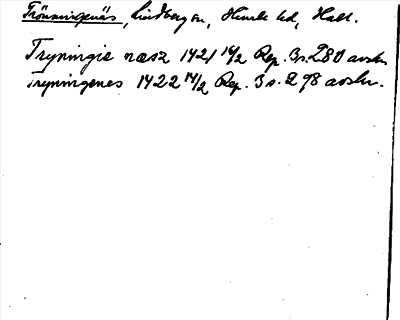 Trönningenäs, Lindberg sn, Himle hd, Hall.
Tryningie næsz 1421 14/2 Rep. 3 s. 280 avskr.
Tryningenes 1422 14/2 Rep. 3 s. 298 avskr.